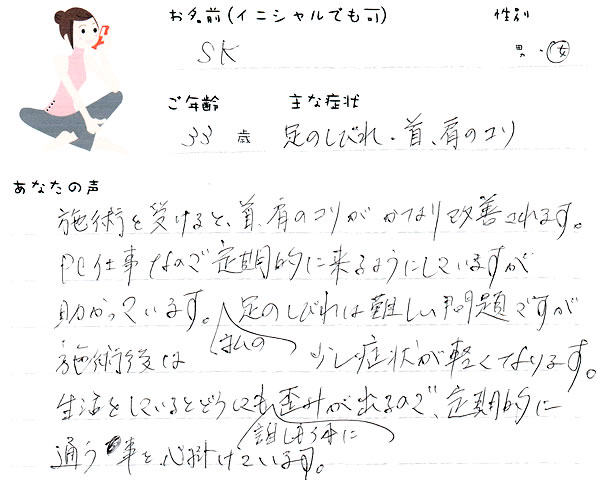 お名前(イニシャルでも可) 性別
SK 男・女
ご年齢 主な症状
33 歳 足のしびれ・首、肩のコリ
あなたの声
施術を受けると、首、肩のコリがかなり改善されます。
PC仕事なので定期的に来るようにしていますが
助かっています。足のしびれは難しい問題ですが
施術後は 私の 少し症状が軽くなります。
生活をしているとどうしても歪みが出るので、定期的に
誰しも体に
通う事を心掛けています。